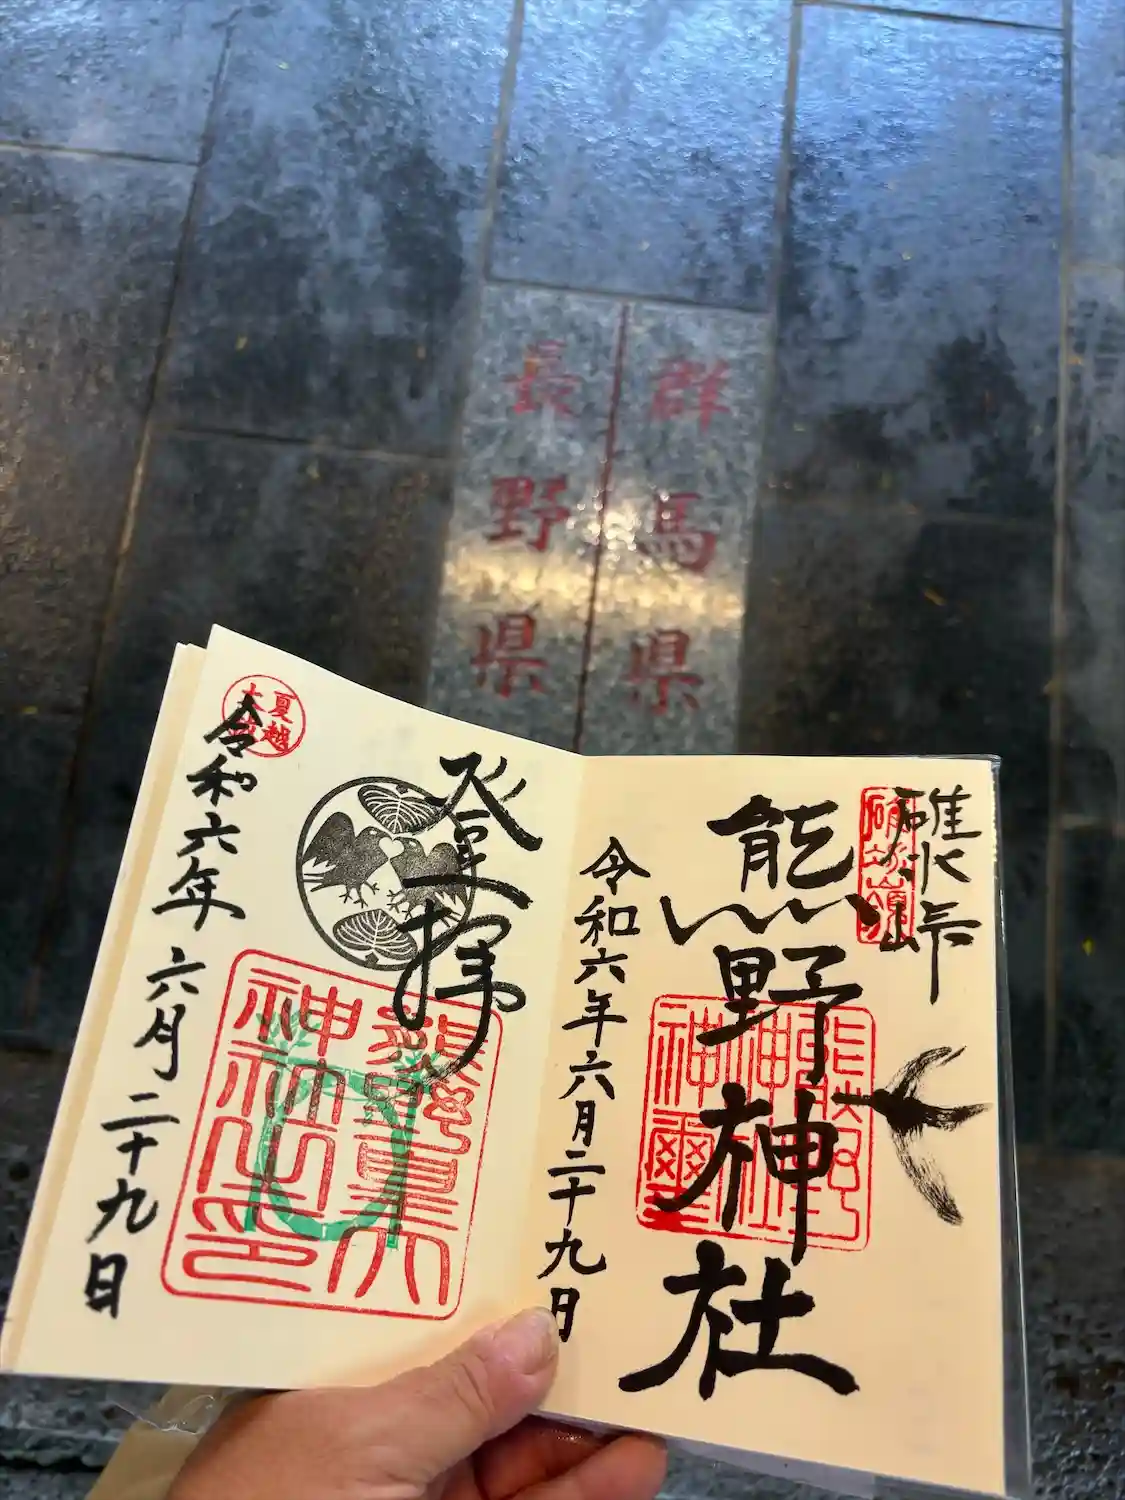 群馬県
長野県
碓氷峠
熊野神社
令和六年六月二十九日
登拝
熊野皇大神社之印
夏越
令和六年六月二十九日